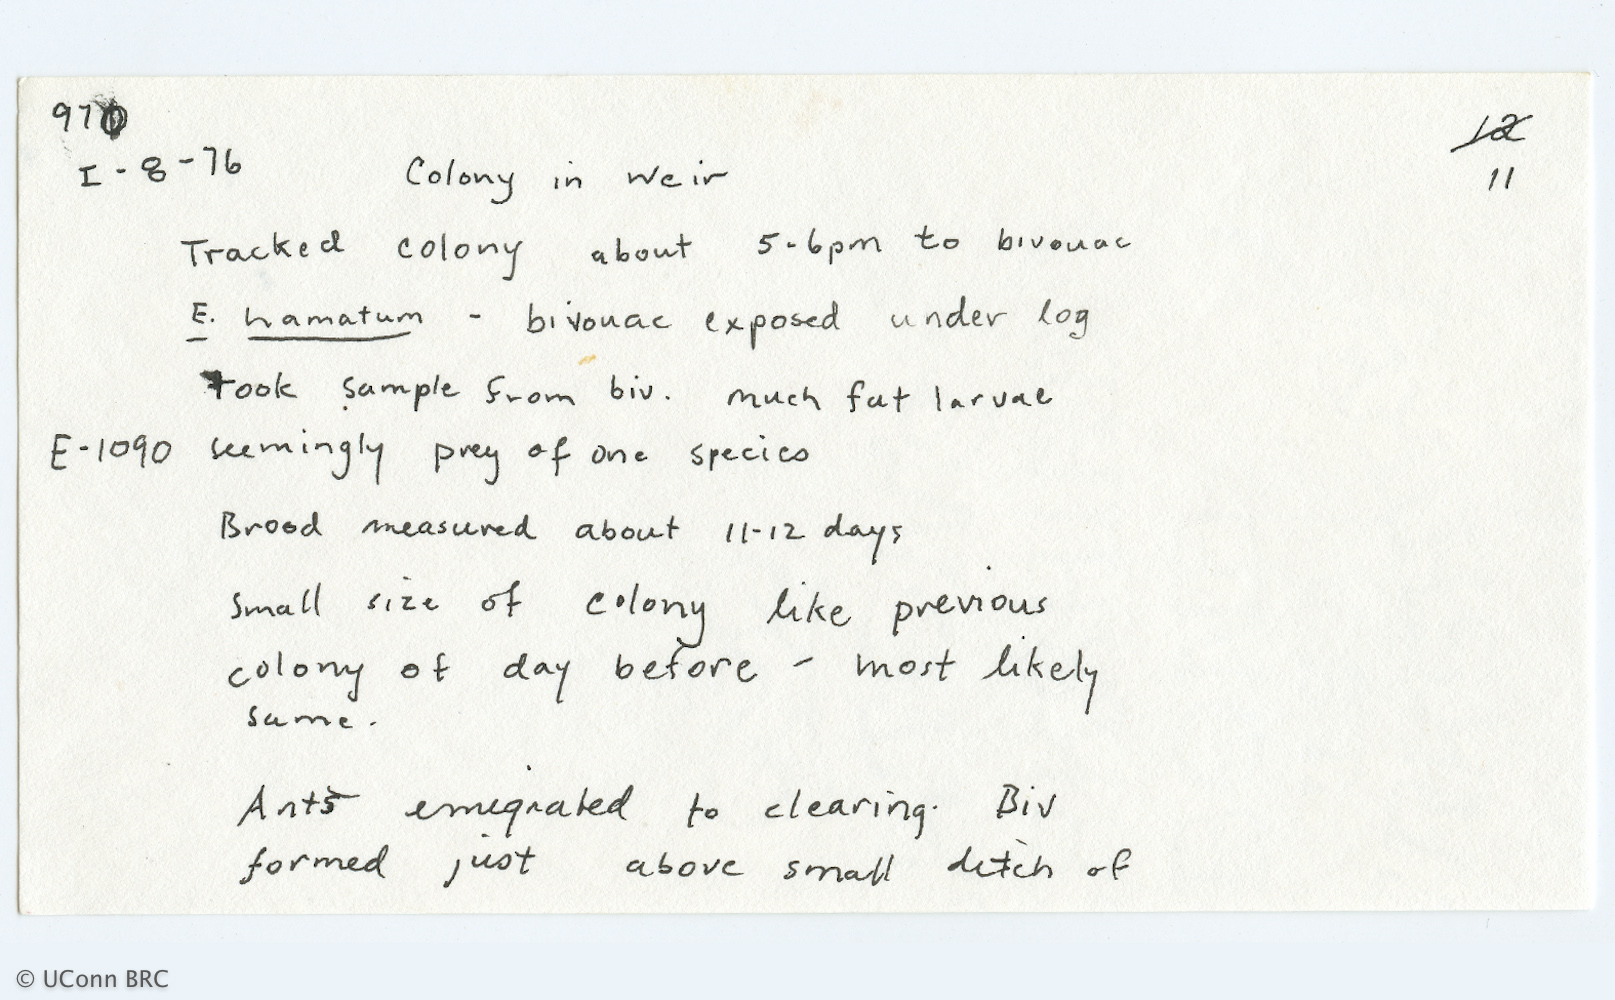 970
12
I-8-76 Colony in Weir 11
Tracked colony about 5-6pm to bivouac
E. hamatum - bivouac exposed under log
took sample from biv. much fat larvae
E-1090 seemingly prey of one species
Brood measured about 11-12 days
Small size of colony like previous
colony of day before - most likely
same.
Ants emigrated to clearing. Biv
formed just above small ditch of
© UConn BRC